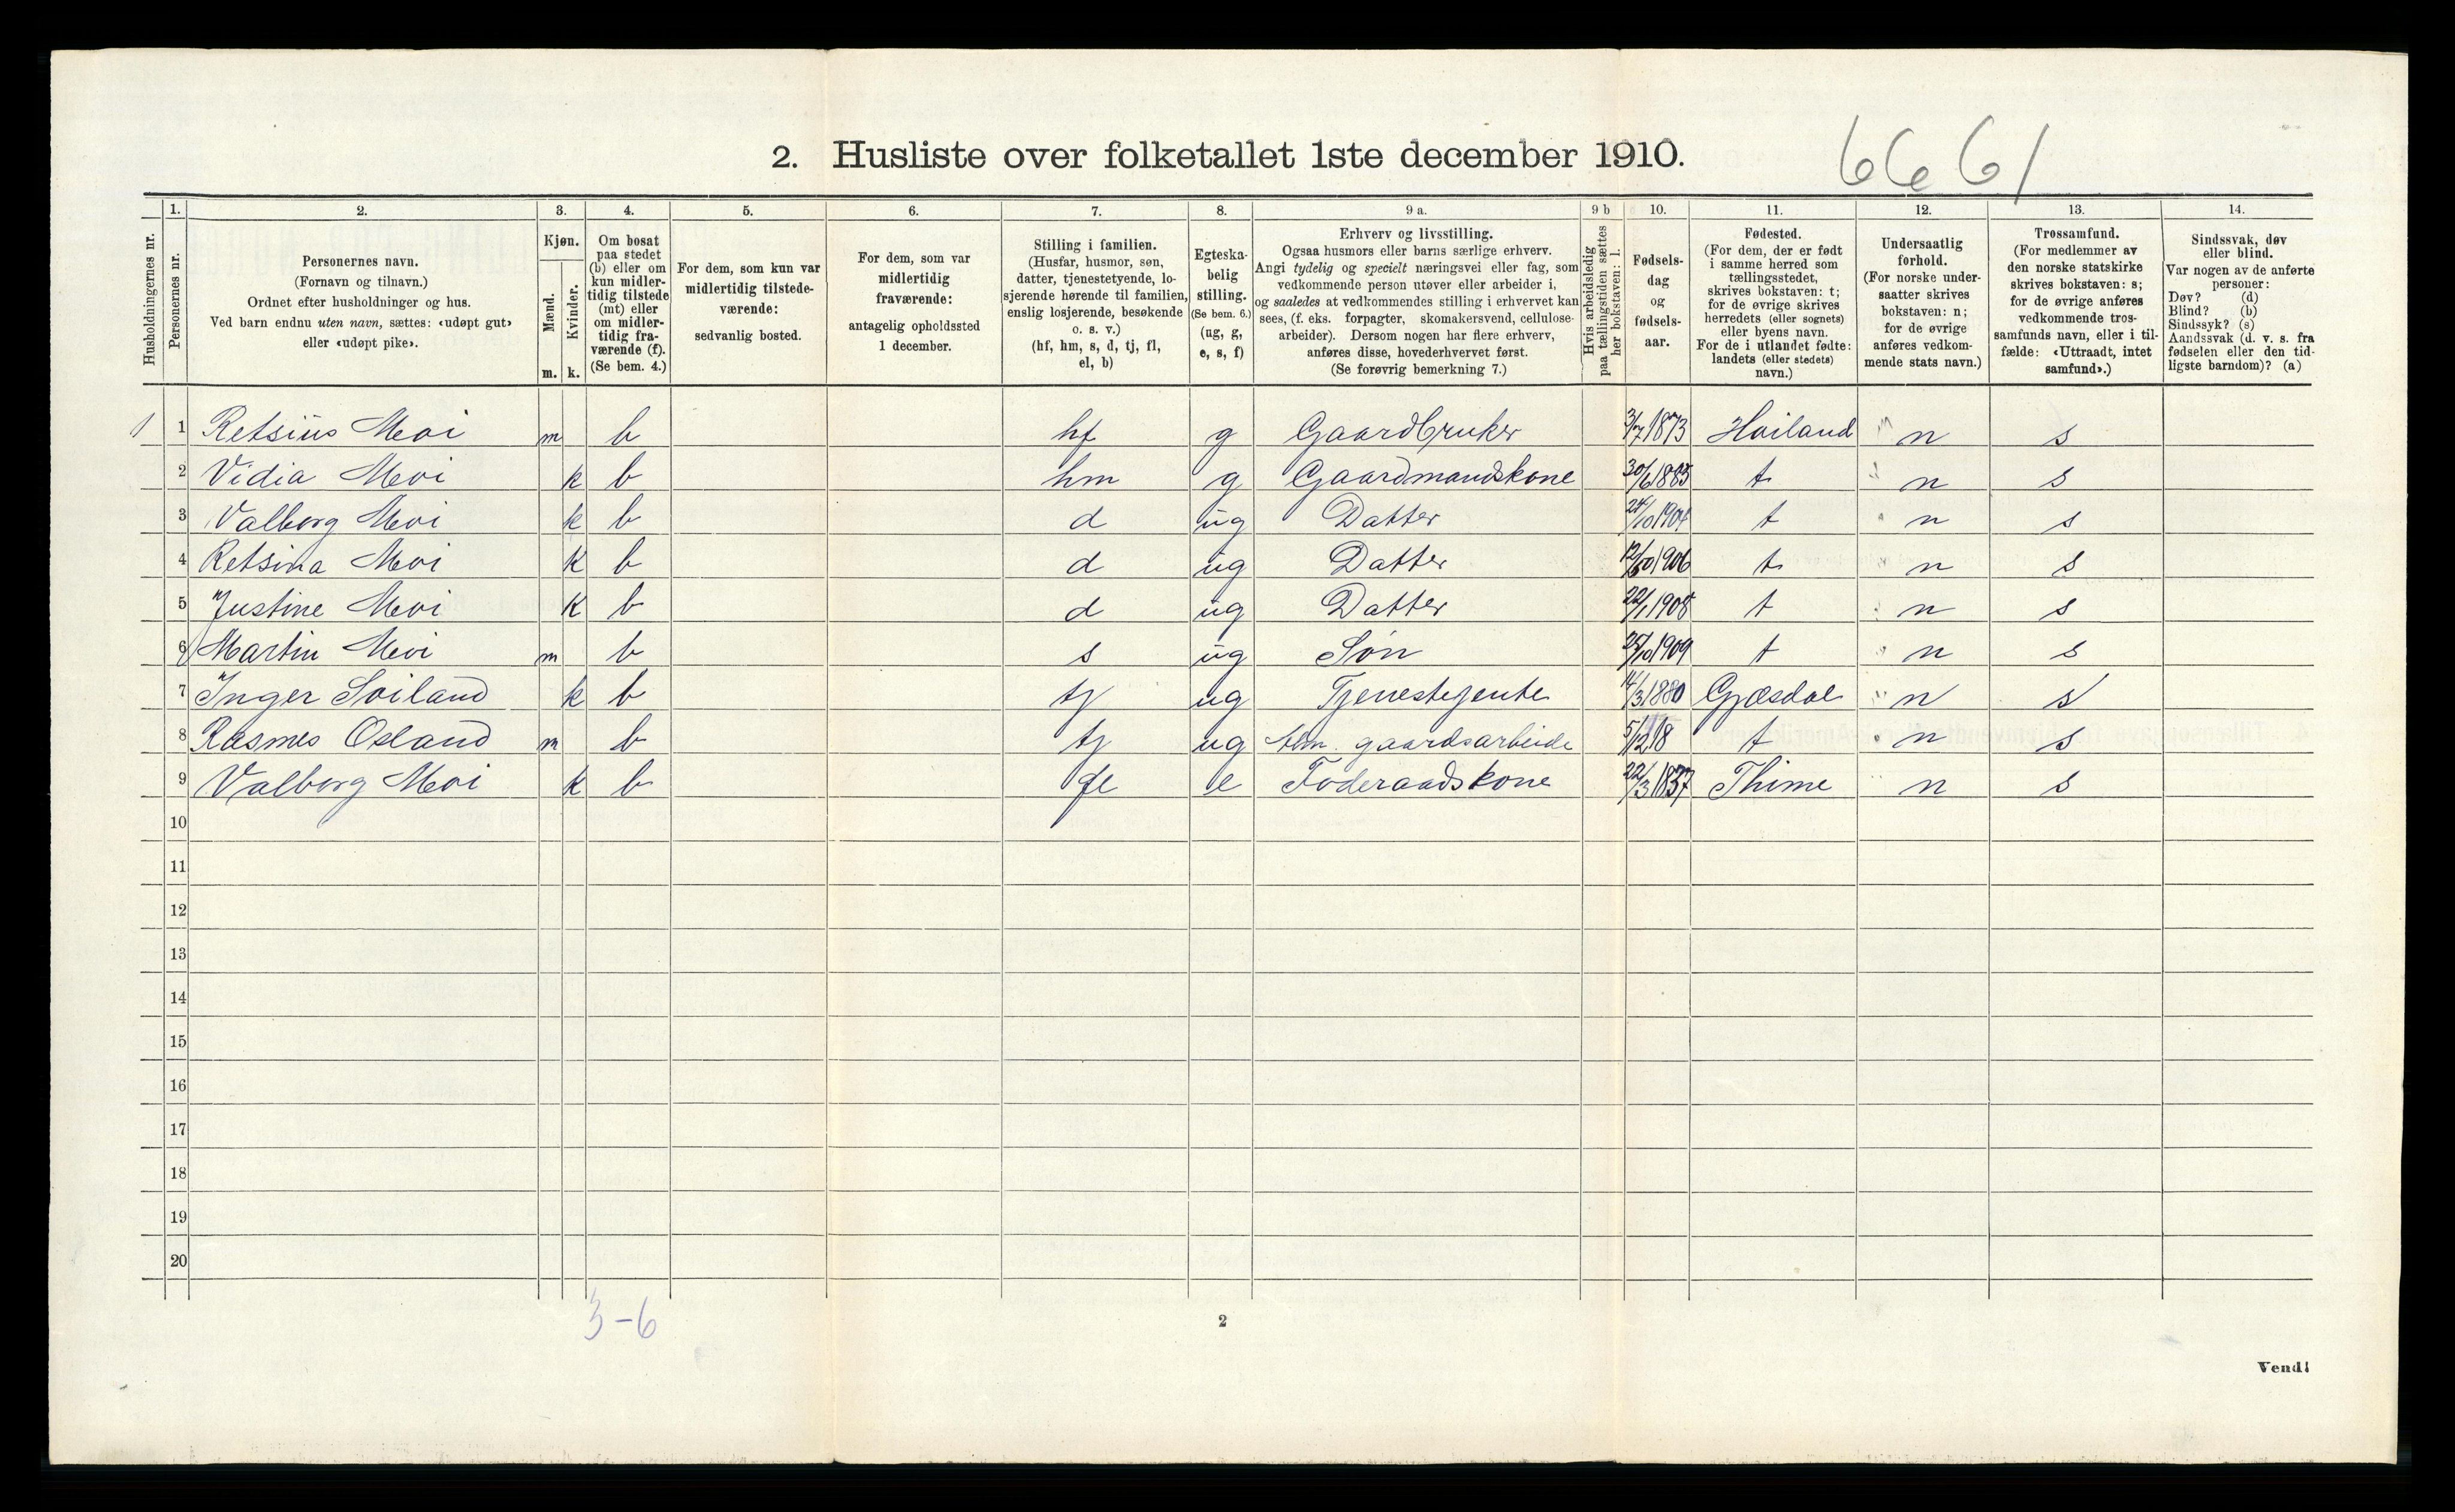 2. Husliste over folketallet 1ste december 1910.
6661
Husholdningernes nr.
1.
Personernes nr.
2.
Personernes navn.
(Fornavn og tilnavn.)
Ordnet efter husholdninger og hus.
Ved barn endnu uten navn, sættes: «udøpt gut»
eller «udøpt pike».
3.
Kjøn.
Mænd.
Kvinder.
m. k.
4.
Om bosat
paa stedet
(b) eller om
kun midler-
tidig tilstede
(mt) eller
om midler-
tidig fra-
værende (f).
(Se bem. 4.)
5.
For dem, som kun var
midlertidig tilstede-
værende:
sedvanlig bosted.
6.
For dem, som var
midlertidig
fraværende:
antagelig opholdssted
1 december.
7.
Stilling i familien.
(Husfar, husmor, søn,
datter, tjenestetyende, lo-
sjerende hørende til familien,
enslig losjerende, besøkende
o. s. v.)
(hf, hm, s, d, tj, fl,
el, b)
8.
Egteska-
belig
stilling.
(Se bem. 6.)
(ug, g,
e, s, f)
9 a.
Erhverv og livsstilling.
Ogsaa husmors eller barns særlige erhverv.
Angi tydelig og specielt næringsvei eller fag, som
vedkommende person utøver eller arbeider i,
og saaledes at vedkommendes stilling i erhvervet kan
sees, (f. eks. forpagter, skomakersvend, cellulose-
arbeider). Dersom nogen har flere erhverv,
anføres disse, hovederhvervet først.
(Se forøvrig bemerkning 7.)
9 b
Hvis arbeidsledig
paa tællingstiden sættes
her bokstaven: l.
10.
Fødsels-
dag
og
fødsels-
aar.
11.
Fødested.
(For dem, der er født
i samme herred som
tællingsstedet,
skrives bokstaven: t;
for de øvrige skrives
herredets (eller sognets)
eller byens navn.
For de i utlandet fødte:
landets (eller stedets)
navn.)
12.
Undersaatlig
forhold.
(For norske under-
saatter skrives
bokstaven: n;
for de øvrige
anføres vedkom-
mende stats navn.)
13.
Trossamfund.
(For medlemmer av
den norske statskirke
skrives bokstaven: s;
for de øvrige anføres
vedkommende tros-
samfunds navn, eller i til-
fælde: «Uttraadt, intet
samfund».)
14.
Sindssvak, døv
eller blind.
Var nogen av de anførte
personer:
Døv? (d)
Blind? (b)
Sindssyk? (s)
Aandssvak (d. v. s. fra
fødselen eller den tid-
ligste barndom)? (a)
1 1 Retsius Moi m b hf g Gaardbruker 3/7 1873 Hoiland n s
2 Vidia Moi k b hm g Gaardmandskone 30/6 1883 t n s
3 Valborg Moi k b d ug Datter 24/10 1904 t n s
4 Retsina Moi k b d ug Datter 12/10 1906 t n s
5 Justine Moi k b d ug Datter 22/1 1908 t n s
6 Martin Moi m b s ug Søn 25/10 1909 t n s
7 Inger Soiland k b tj ug Tjenestejente 14/3 1880 Gjæsdal n s
8 Rasmes Osland m b tj ug alm. gaardsarbeide 5/12 t n s
9 Valborg Moi k b fl e Føderaadskone 22/3 1837 Thime n s
10
11
12
13
14
15
16
17
18
19
20
3-6
2
Vend!